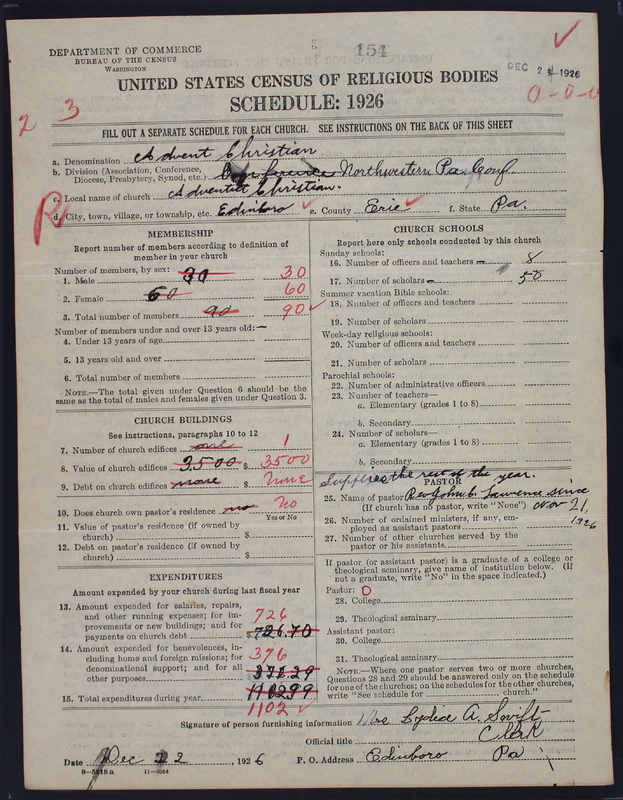 154
DEPARTMENT OF COMMERCE
BUREAU OF THE CENSUS
WASHINGTON
DEC 2 1926
UNITED STATES CENSUS OF RELIGIOUS BODIES
SCHEDULE: 1926
0-0-0
2 3
FILL OUT A SEPARATE SCHEDULE FOR EACH CHURCH. SEE INSTRUCTIONS ON THE BACK OF THIS SHEET
a. Denomination Advent Christian
b. Division (Association, Conference, Diocese, Presbytery, Synod, etc.) Conference Northwestern Pa. Conf.
c. Local name of church Adventist Christian.
d. City, town, village, or township, etc. Edinboro e. County Erie f. State Pa.
R
MEMBERSHIP
Report number of members according to definition of
member in your church
Number of members, by sex:
1. Male 30 30
2. Female 60 60
3. Total number of members 90 90
Number of members under and over 13 years old:—
4. Under 13 years of age
5. 13 years old and over
6. Total number of members
NOTE.—The total given under Question 6 should be the
same as the total of males and females given under Question 3.
CHURCH BUILDINGS
See instructions, paragraphs 10 to 12
7. Number of church edifices one 1
8. Value of church edifices 3500 $ 3500
9. Debt on church edifices none $ none
10. Does church own pastor's residence no No
Yes or No
11. Value of pastor's residence (if owned by
church) $
12. Debt on pastor's residence (if owned by
church) $
EXPENDITURES
Amount expended by your church during last fiscal year
13. Amount expended for salaries, repairs,
and other running expenses; for im-
provements or new buildings; and for
payments on church debt $ 726.70
726
14. Amount expended for benevolences, in-
cluding home and foreign missions; for
denominational support; and for all
other purposes
376
15. Total expenditures during year
1102
CHURCH SCHOOLS
Report here only schools conducted by this church
Sunday schools:
16. Number of officers and teachers 8
17. Number of scholars 50
Summer vacation Bible schools:
18. Number of officers and teachers
19. Number of scholars
Week-day religious schools:
20. Number of officers and teachers
21. Number of scholars
Parochial schools:
22. Number of administrative officers
23. Number of teachers—
a. Elementary (grades 1 to 8)
b. Secondary
24. Number of scholars—
a. Elementary (grades 1 to 8)
b. Secondary
Supplies the rest of the year.
PASTOR
25. Name of pastor Rev John C. Lawrence since
(If church has no pastor, write "None") Nov 21,
1926
26. Number of ordained ministers, if any, em-
ployed as assistant pastors
27. Number of other churches served by the
pastor or his assistants
If pastor (or assistant pastor) is a graduate of a college or
theological seminary, give name of institution below. (If
not a graduate, write "No" in the space indicated.)
Pastor: 0
28. College
29. Theological seminary
Assistant pastor:
30. College
31. Theological seminary
NOTE.—Where one pastor serves two or more churches,
Questions 28 and 29 should be answered only on the schedule
for one of the churches; on the schedules for the other churches,
write "See schedule for church."
Signature of person furnishing information Mrs Lydia A. Swift
Official title Clerk
Date Dec 22, 1926 P. O. Address Edinboro Pa
8-5518 a 11-9054